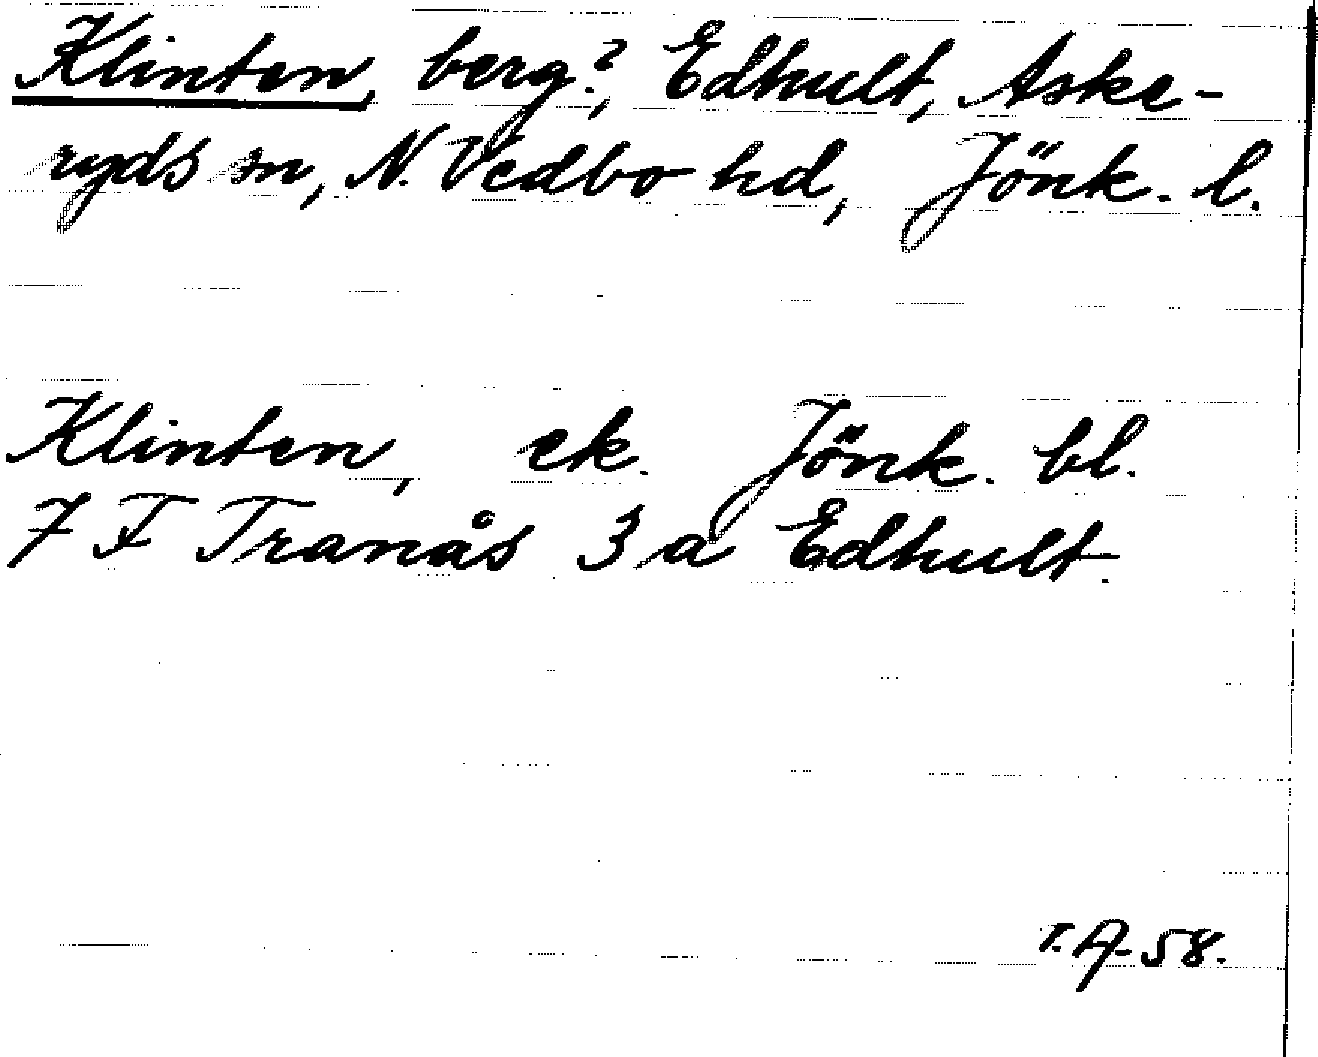 Klinten, berg?, Edhult, Aske-
ryds sn, N. Vedbo hd, Jönk. l.
Klinten, ek. Jönk. bl.
7 F Tranås 3 a Edhult.
T.A. 58.